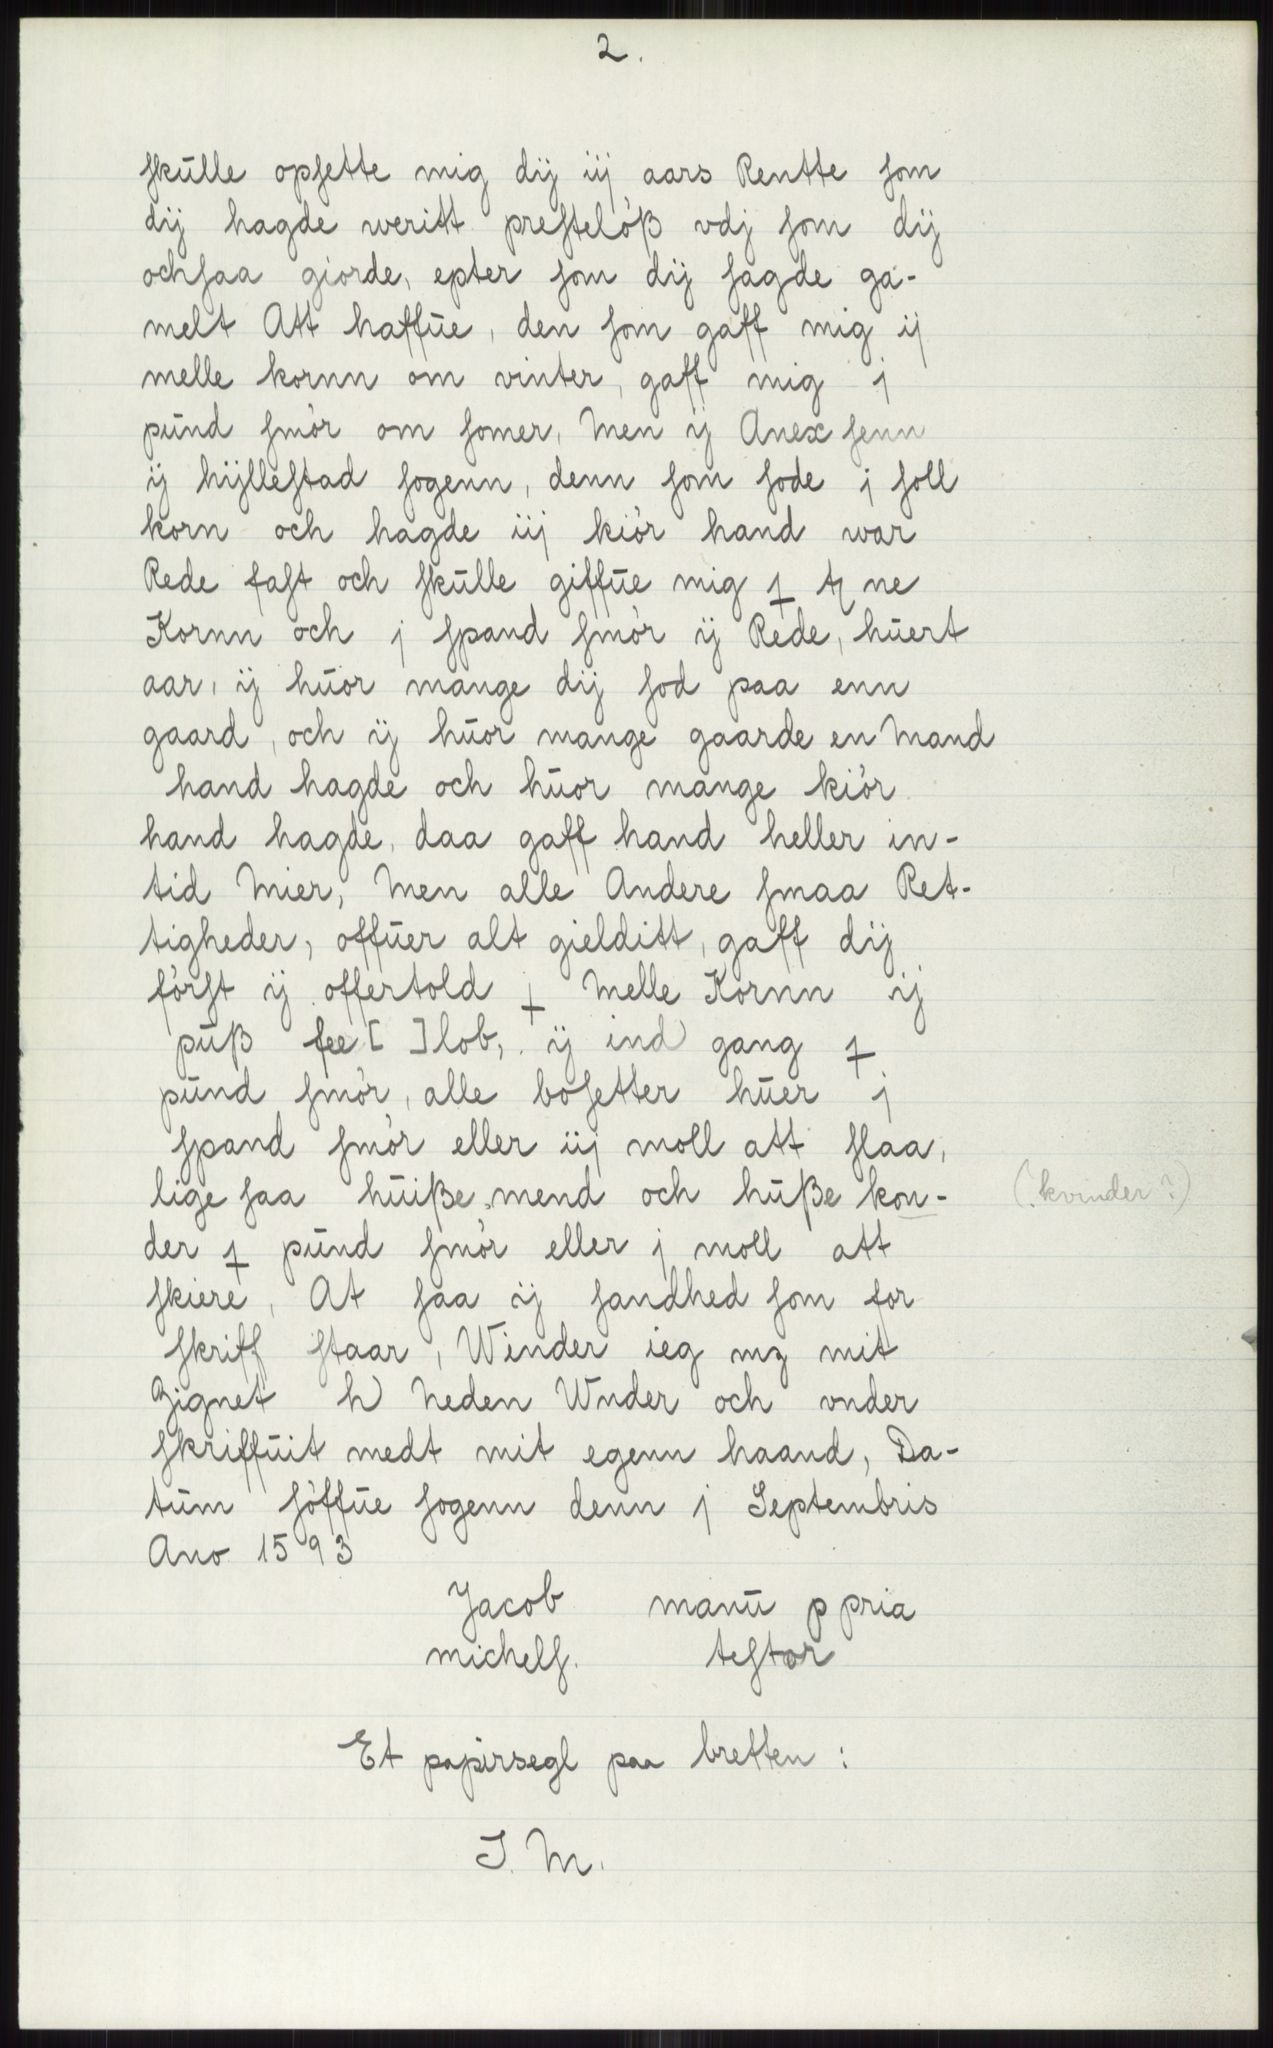 2.
skulle opsette mig dij iij aars Rentte som
dij hagde weritt presteløß vdj som dij
ochsaa giorde, epter som dij sagde ga-
melt Att haffue, den som gaff mig ij
melle kornn om vinter, gaff mig j
pund smør om somer, Men ij Anex senn
ij hÿllestad sogenn, denn som sode j soll
korn och hagde iij kiør hand war
Rede fast och skulle giffue mig ne
Kornn och j spand smør ij Rede, huert
aar, ij huor mange dij sod paa enn
gaard, och ij huor mange gaarde en Mand
hand hagde och huor mange kiør
hand hagde, daa gaff hand heller in-
tid Mier, Men alle Andere smaa Ret-
tigheder, offuer alt gielditt, gaff dij
først ij offertold ɟ Melle Kornn ij
puß fee [ ] lob, ij ind gang ɟ
pund smør, alle bosetter huer j
spand smør eller iij moll att slaa,
lige saa huiße mend och huße kon-
(kvinder?)
der ɟ pund smør eller j moll att
skiere, At saa ij sandhed som for
skriff staar, Winder ieg mz mit
Zignet h Neden Wnder och vnder
skriffuit medt mit egenn haand, Da-
tum søffue sogenn denn j Septembris
Ano 1593
Jacob manu p pria
michels. testor
Et papirsegl paa bretten:
J. M.